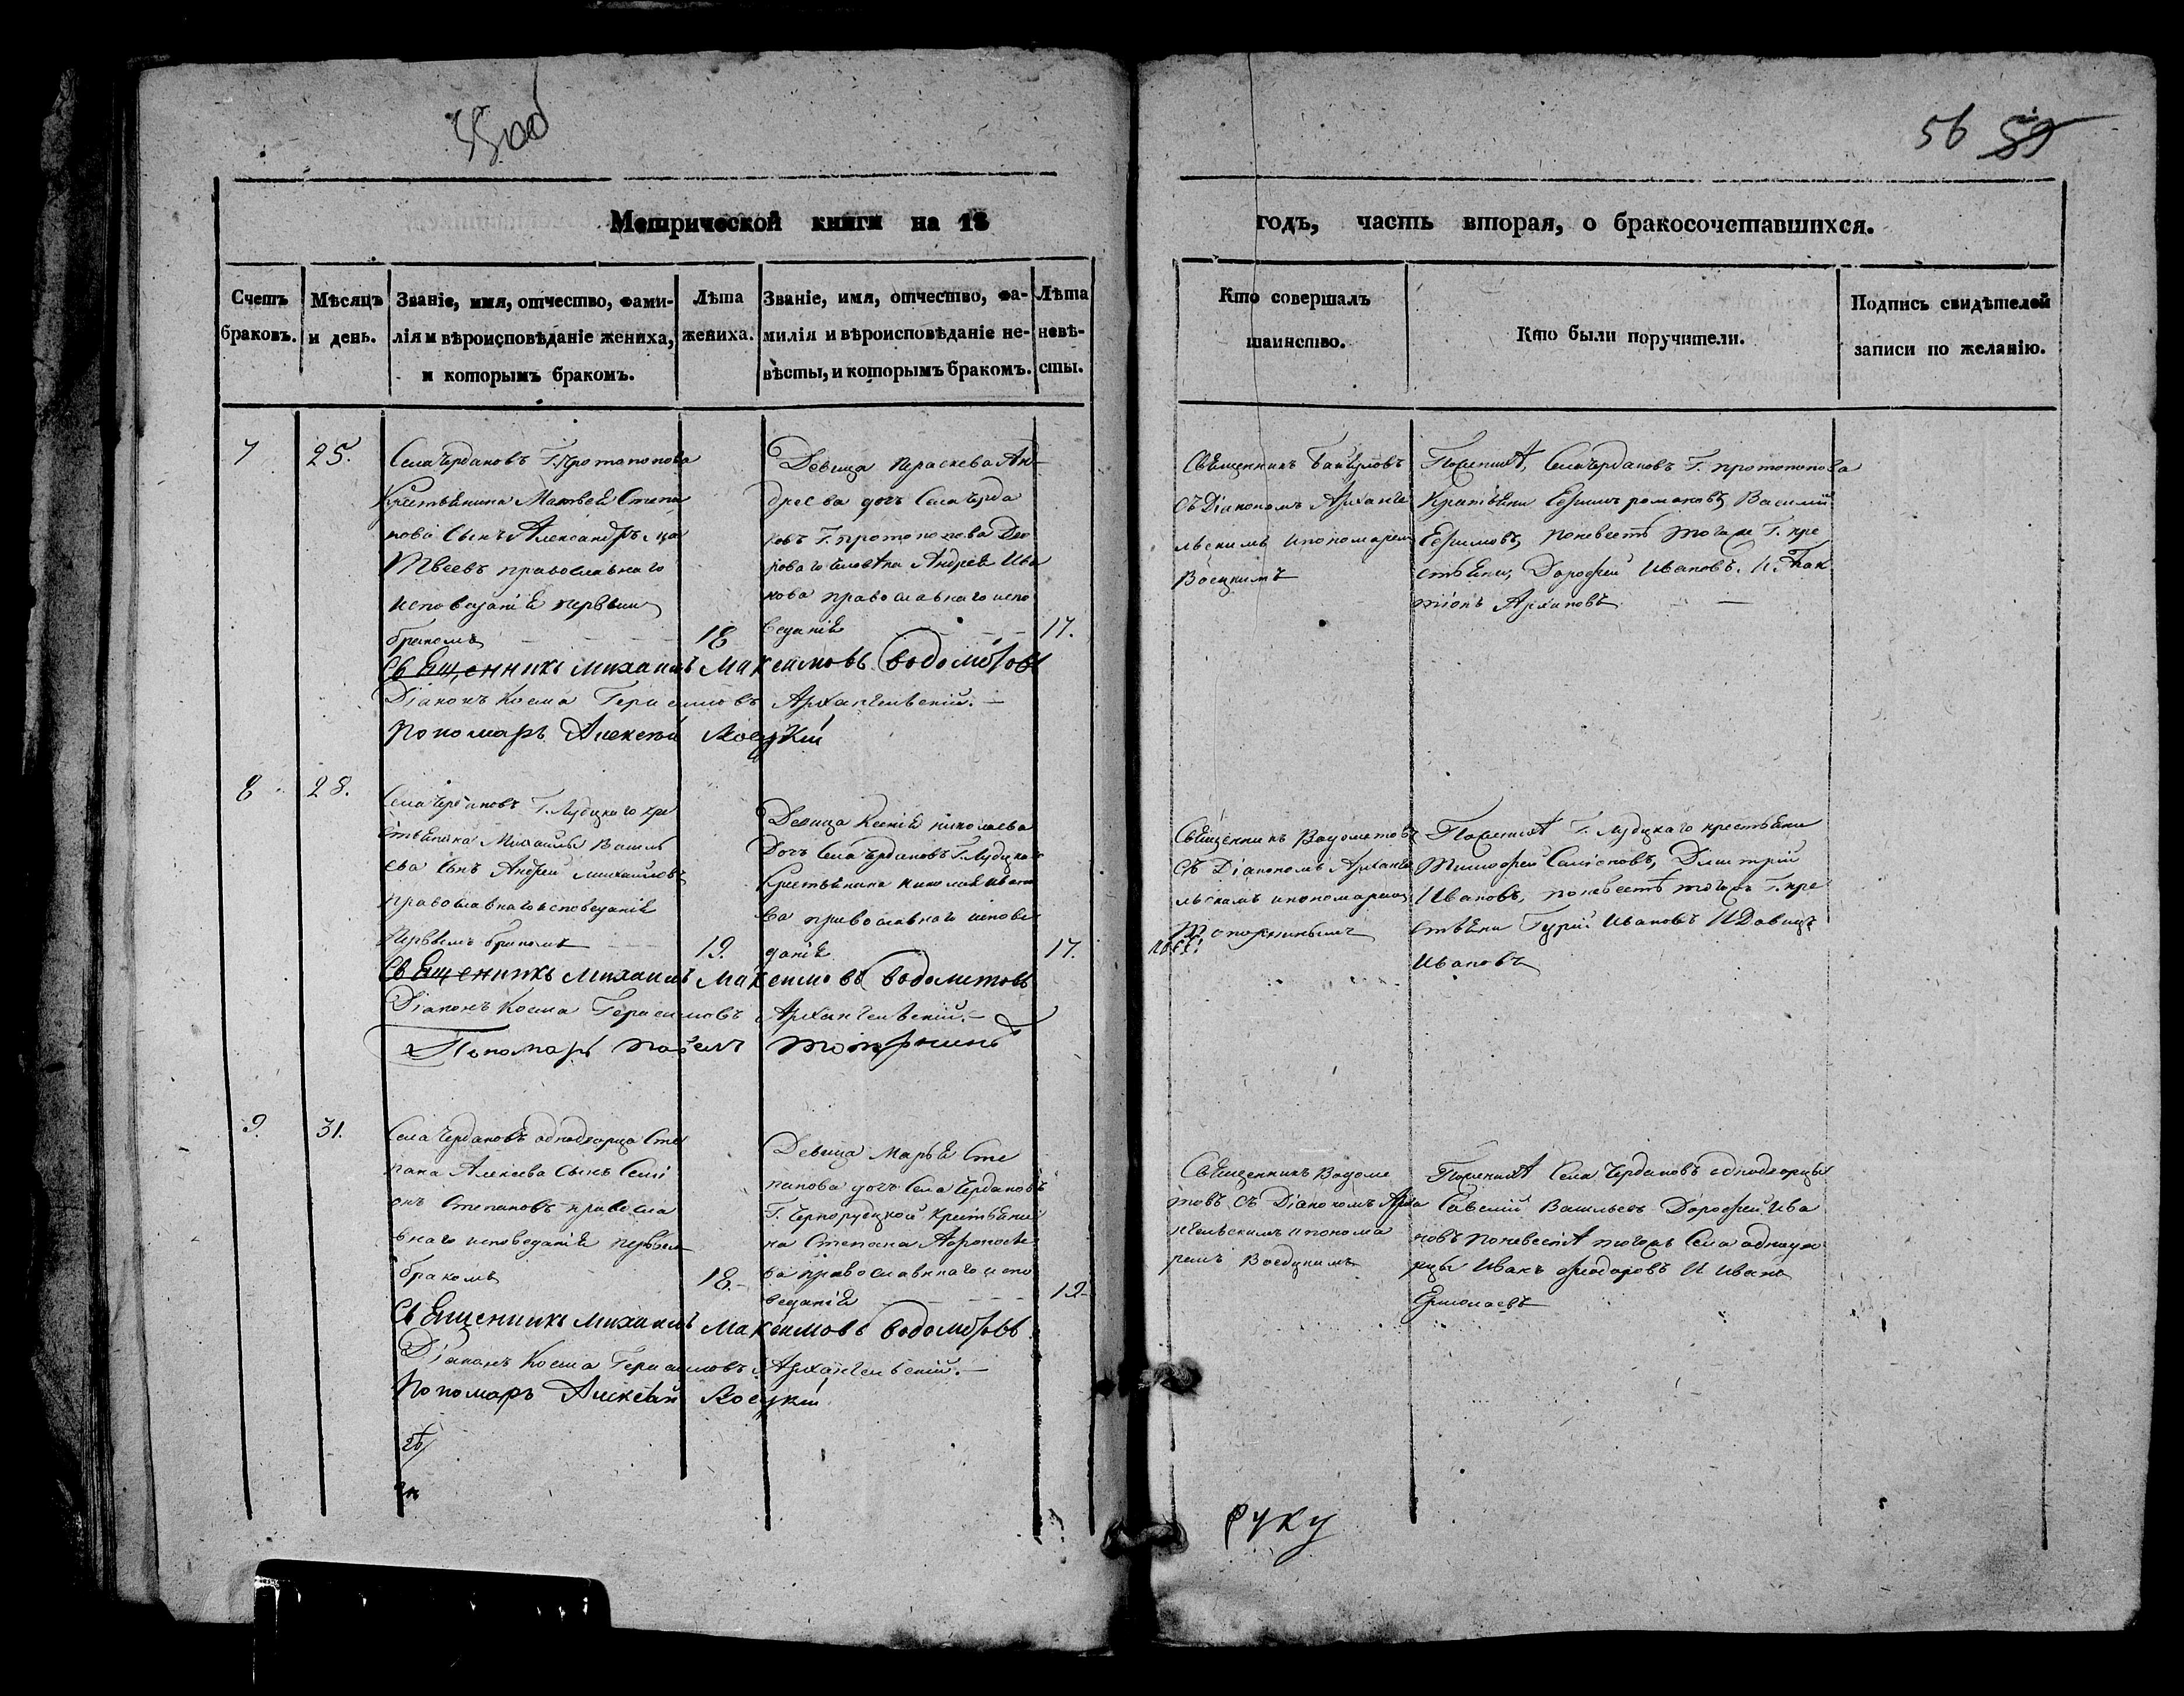 55 об
56 59
Метрической книги на 18
годъ, часть вторая, о бракосочетавшихся.
Счетъ браковъ.
Мѣсяцъ и день.
Званіе, имя, отчество, фами-
лія и вѣроисповѣданіе жениха,
и которымъ бракомъ.
Лѣта
жениха.
Званіе, имя, отчество, фа-
милія и вѣроисповѣданіе не-
вѣсты, и которымъ бракомъ.
Лѣта
невѣ-
сты.
Кто совершалъ
таинство.
Кто были поручители.
Подпись свидѣтелей
записи по желанію.
7
25.
Села Чердаковъ Г. Протопопова
Крестьянина Матвея Степа
нова сынъ Александръ Ма
твеевъ православнаго
исповеданія первым
бракомъ
18
Девица Параскева Ан
дреева дочь Села Черда
ковъ Г. Протопопова Дво
роваго человѣка Андрея Ива
нова православнаго испо
веданія
17.
Священникъ
съ Діакономъ Арханге
льскимъ и пономарем
Воецкимъ
По женихѣ, Села Чердаковъ Г. Протопопова
Крестьяни Ефимъ романовъ, Василий
Ефимовъ, по невестѣ того же Г. кре
стьяни, Дорофей Ивановъ. И
Архиповъ
Священникъ Михаилъ Максимовъ Водометовъ
Діаконъ Косма Герасимовъ Архангельский.
Пономарь Алексѣй Воецкій
8
28.
Села Чердаковъ Г. Лудицкаго кре
стьянина Михаила Василь
ева сынъ Андрей Михайловъ
православнаго исповеданія
Первымъ бракомъ
19.
Девица Ксения Николаева
Дочь Села Чердаковъ Г. Лудицкаго
Крестьянина Николая Ивано
ва православнаго испове
данія
17.
Священникъ Водометовъ
Съ Діакономъ Арханге
льскимъ и пономарем
Топорнинымъ
По женихѣ Г. Лудицкаго крестьяни
Тимофей Самсоновъ, Дмитрий
Ивановъ, по невестѣ тогожъ Г. кре
стьяни Гурий Ивановъ И Давидъ
Ивановъ
Священникъ Михаилъ Максимовъ Водометовъ
Діаконъ Косма Герасимовъ Архангельский.
Пономарь Павелъ Топорнинъ
9.
31.
Села Чердаковъ однодворца Сте
пана Алексеева Сынъ Семі
онъ Степановъ правосла
внаго исповеданія первым
бракомъ
18.
Девица Марья Сте
панова дочь Села Чердаковъ
Г. Чернорудцкой Крестьяни
на Степана Афонасье
ва православнаго испо
веданія
19
Священникъ Водоме
товъ Съ Діакономъ Арха
нгельскимъ и понома
ремъ Воецкимъ
По женихѣ Села Чердаковъ однодворцы
Савелий Васильевъ Дорофей Ива
новъ по невестѣ тогожъ Села однодво
рцы Иванъ Феодоровъ И Иванъ
Ермолаевъ
Священникъ Михаилъ Максимовъ Водометовъ
Діаконъ Косма Герасимовъ Архангельский.
Пономарь Алексѣй Воецкій
руку